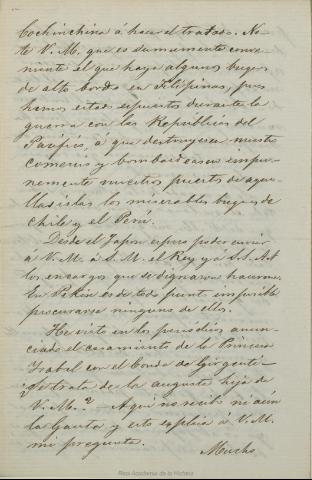 Cochinchina á hacer el tratado. No-
te V. M. que es sumamente conve-
niente el que haya algunos buques
de alto bordo en Filipinas, pues
hemos estado espuestos durante la
guerra con las Republicas del
Pacífico, á que destruyesen nuestro
comercio y bombardeasen impu-
nemente nuestros puertos de aque-
llas islas los miserables buques de
Chile y el Perú.
Desde el Japon espero poder enviar
á V. M. á S. M. el Rey y á S. A.
los encargos que se dignaron hacerme.
En Pekin es de todo punto imposible
procurarse ninguno de ellos.
He visto en los periódicos anun-
ciado el casamiento de la Princesa
Isabel con el Conde de Girgenti
¿Se trata de la augusta hija de
V. M.? - Aquí no recibí ni aun
la Gaceta y esto esplica á V. M.
mi pregunta.
Mucho
Real Academia de la Historia